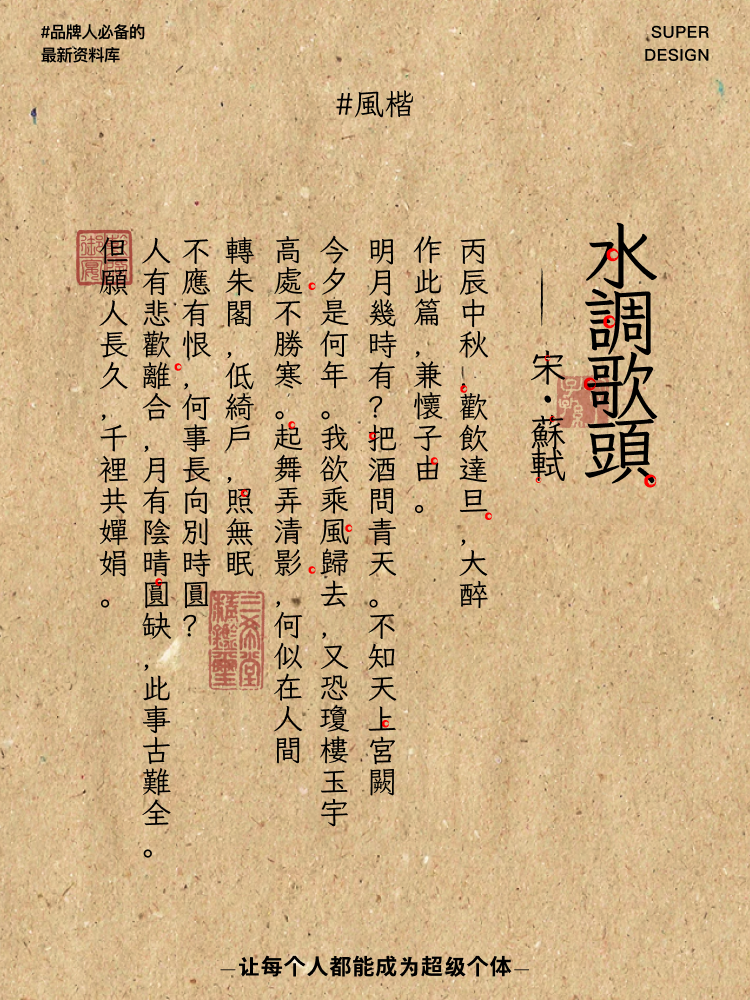 #品牌人必备的
最新资料库
SUPER
DESIGN
#風楷
水調歌頭
——宋·蘇軾
丙辰中秋，歡飲達旦，大醉
作此篇，兼懷子由。
明月幾時有？把酒問青天。不知天上宮闕
今夕是何年。我欲乘風歸去，又恐瓊樓玉宇
高處不勝寒。起舞弄清影，何似在人間
轉朱閣，低綺戶，照無眠
不應有恨，何事長向別時圓？
人有悲歡離合，月有陰晴圓缺，此事古難全。
但願人長久，千裡共嬋娟。
三希堂
精鑑璽
—让每个人都能成为超级个体—